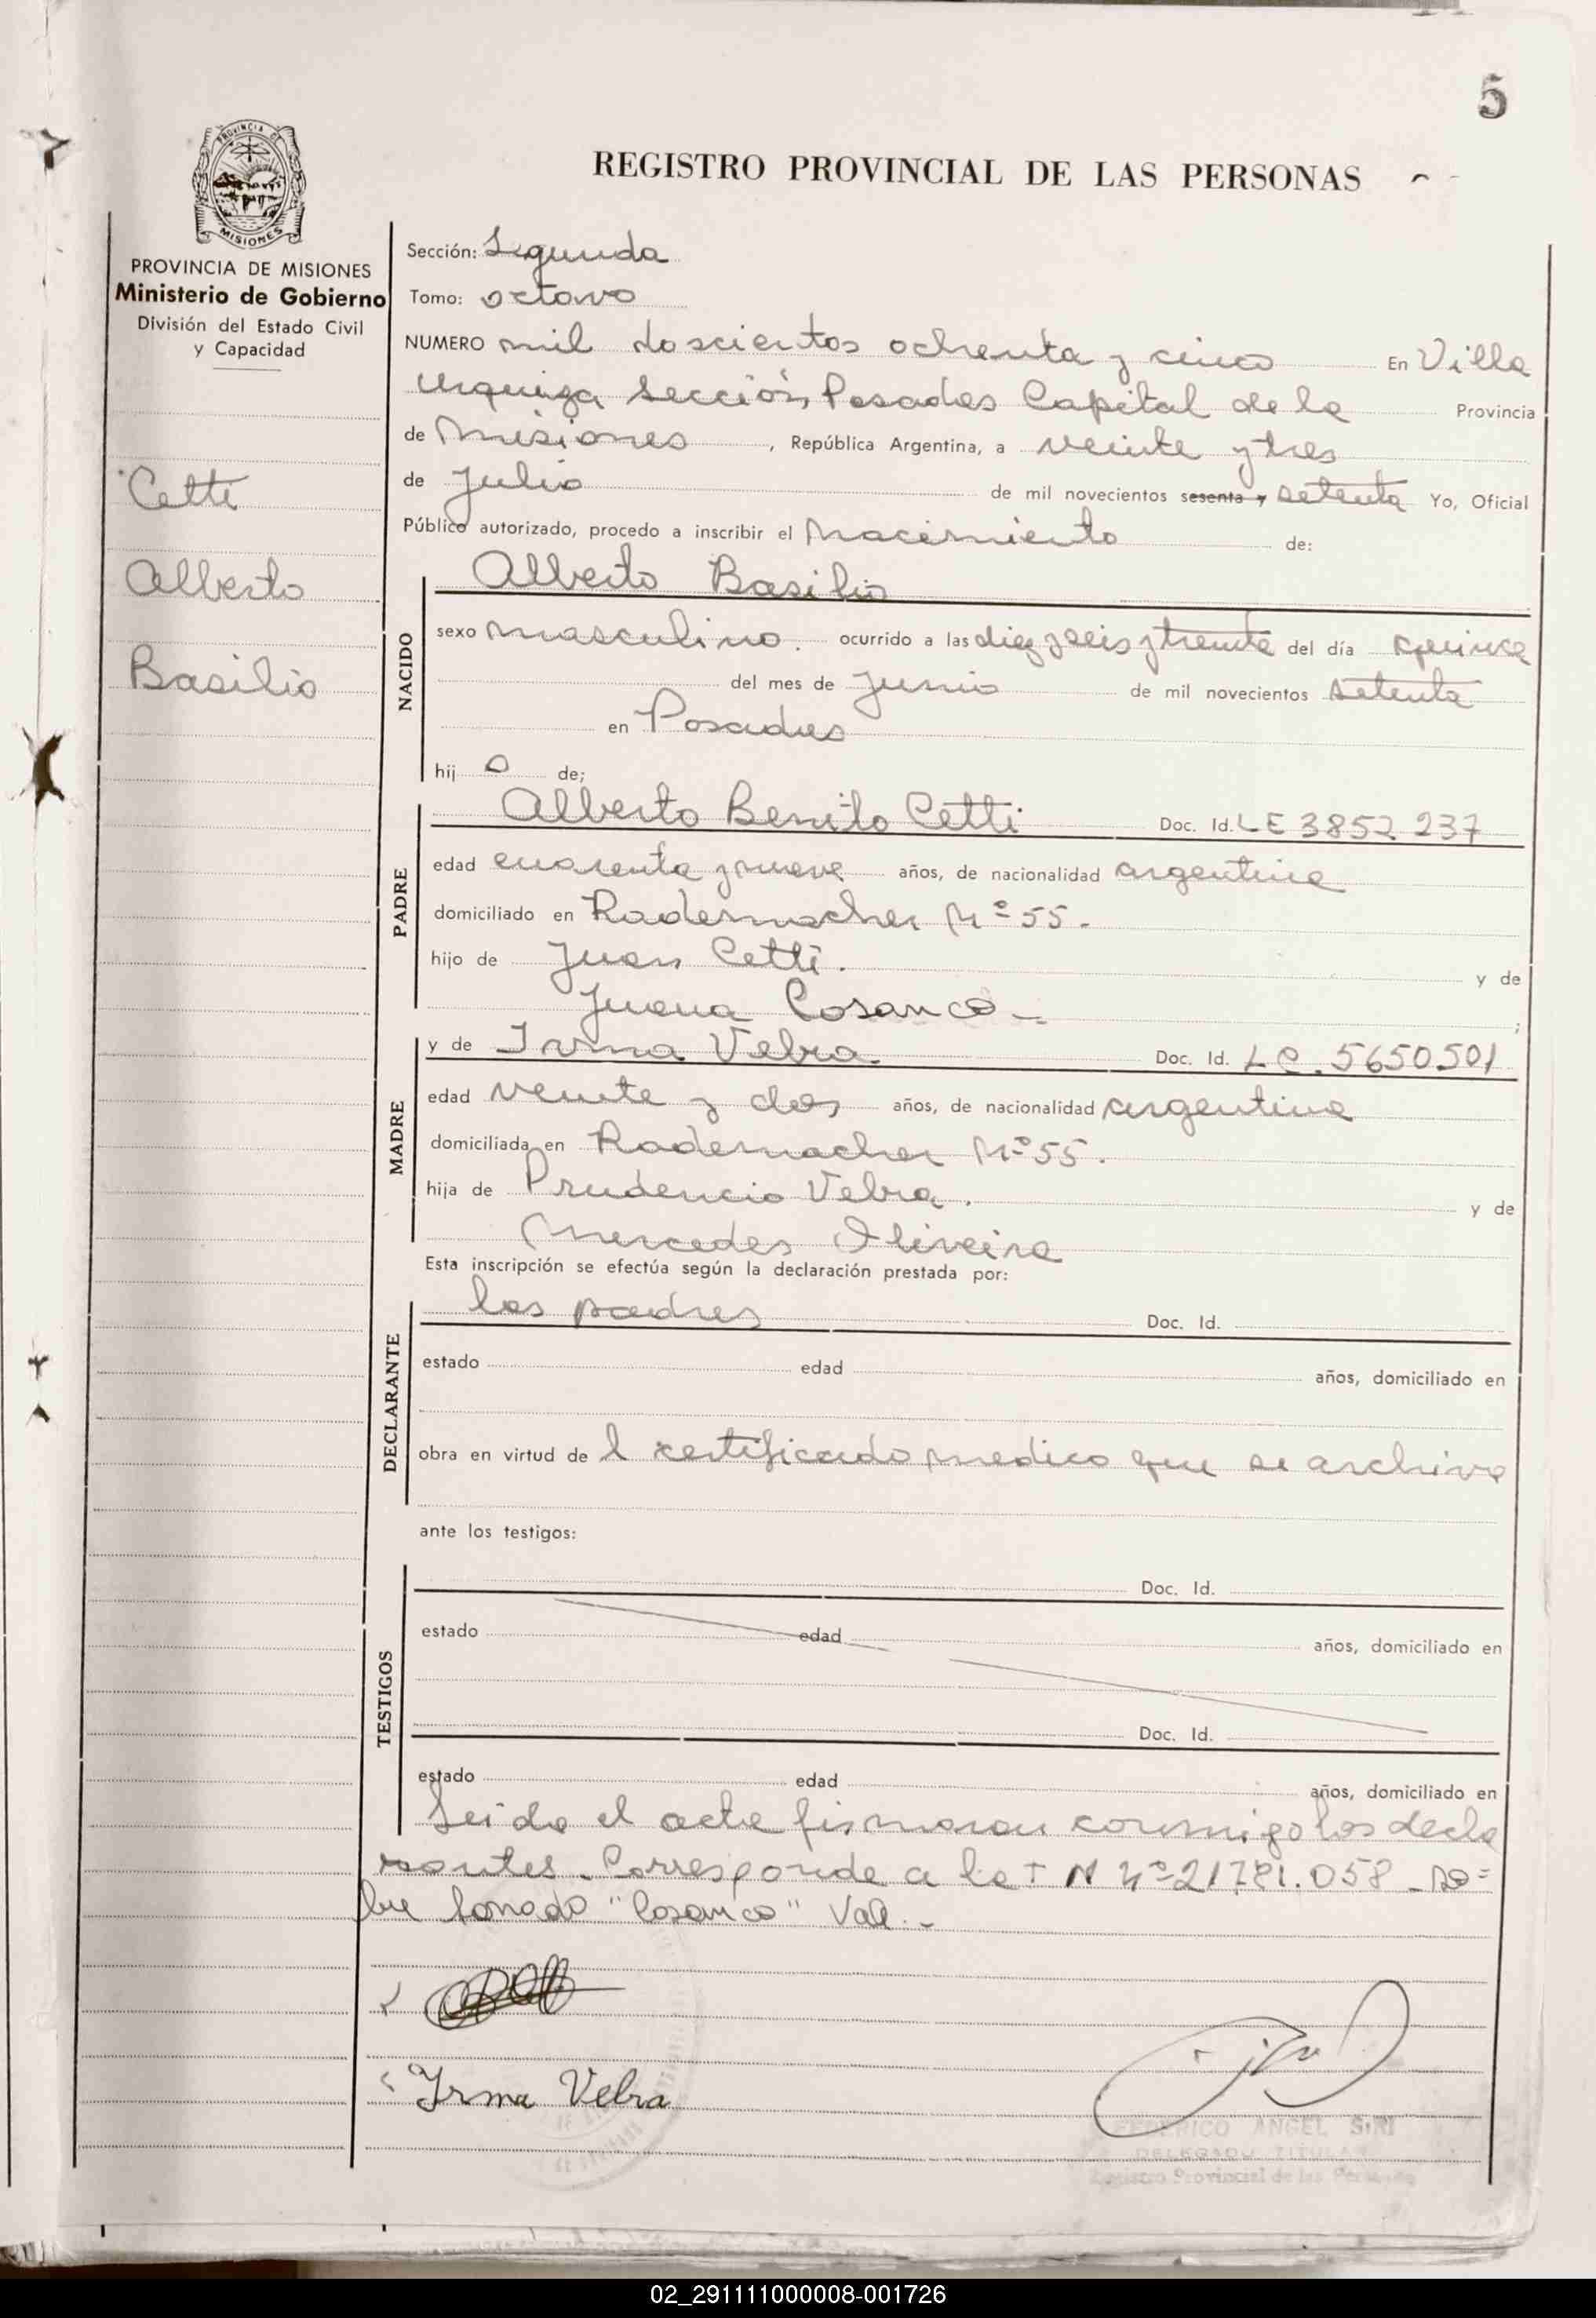 5
REGISTRO PROVINCIAL DE LAS PERSONAS
PROVINCIA DE MISIONES
Ministerio de Gobierno
División del Estado Civil
y Capacidad
Cetti
Alberto
Basilio
Sección: Segunda
Tomo: octavo
NUMERO mil doscientos ochenta y cinco En Villa
Urquiza Sección Posadas Capital de la Provincia
de Misiones, República Argentina, a veinte y tres
de Julio de mil novecientos sesenta y setenta Yo, Oficial
Público autorizado, procedo a inscribir el Nacimiento de:
NACIDO
Alberto Basilio
sexo masculino. ocurrido a las diez y seis y treinta del día quince
del mes de Junio de mil novecientos setenta
en Posadas
hij o de;
PADRE
Alberto Benito Cetti Doc. Id. LE 3852 237
edad cuarenta y nueve años, de nacionalidad argentina
domiciliado en Rademacher Nº 55.
hijo de Juan Cetti. y de
Juana Cosanco - ;
MADRE
y de Irma Velra Doc. Id. LC. 5650501
edad veinte y dos años, de nacionalidad argentina
domiciliada en Rademacher Nº 55.
hija de Prudencio Velra. y de
Mercedes Oliveira
Esta inscripción se efectúa según la declaración prestada por:
DECLARANTE
los padres Doc. Id.
estado edad años, domiciliado en
obra en virtud de l certificado medico que se archiva
ante los testigos:
TESTIGOS
Doc. Id.
estado edad años, domiciliado en
Doc. Id.
estado edad años, domiciliado en
Leida el acta firmaron conmigo los decla
rantes. Corresponde a la T N Nº 21.721.058 - so=
bre borrado "Cosanco" Vale. -
Yrma Velra
FEDERICO ANGEL SIRI
DELEGADO TITULAR
Registro Provincial de las Personas
02_291111000008-001726